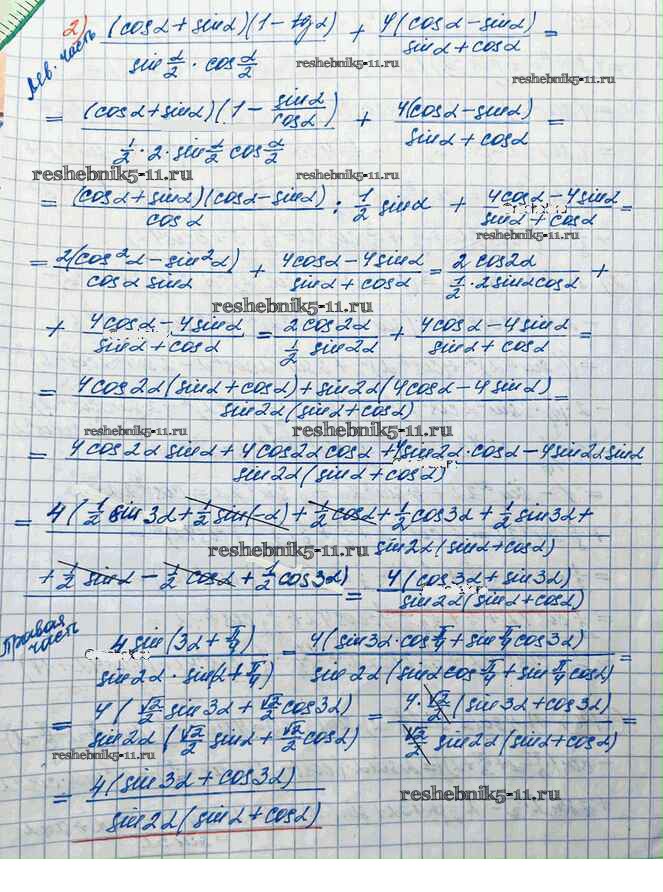 2) (cosα + sinα)(1 - tgα) / (sin α/2 · cos α/2) + 4(cosα - sinα) / (sinα + cosα) =
Лев. часть
reshebnik5-11.ru
= (cosα + sinα)(1 - sinα/cosα) / (1/2 · 2 · sin α/2 cos α/2) + 4(cosα - sinα) / (sinα + cosα) =
reshebnik5-11.ru reshebnik5-11.ru
= (cosα + sinα)(cosα - sinα) / cosα : 1/2 sinα + (4cosα - 4sinα) / (sinα + cosα) =
= 2(cos²α - sin²α) / (cosα sinα) + (4cosα - 4sinα) / (sinα + cosα) = 2cos2α / (1/2 · 2sinαcosα) +
reshebnik5-11.ru
+ (4cosα - 4sinα) / (sinα + cosα) = 2cos2α / (1/2 sin2α) + (4cosα - 4sinα) / (sinα + cosα) =
= (4cos2α(sinα + cosα) + sin2α(4cosα - 4sinα)) / (sin2α(sinα + cosα)) =
reshebnik5-11.ru reshebnik5-11.ru
= (4cos2α sinα + 4cos2α cosα + 4sin2α · cosα - 4sin2α sinα) / (sin2α(sinα + cosα))
= 4(1/2 sin3α + 1/2 sin(-α) + 1/2 cosα + 1/2 cos3α + 1/2 sin3α +
reshebnik5-11.ru
+ 1/2 sinα - 1/2 cosα + 1/2 cos3α) / (sin2α(sinα + cosα)) = 4(cos3α + sin3α) / (sin2α(sinα + cosα))
Правая часть
4 sin(3α + π/4) / (sin2α · sin(α + π/4)) = 4(sin3α · cos π/4 + sin π/4 cos3α) / (sin2α(sinα cos π/4 + sin π/4 cosα)) =
= 4(√2/2 sin3α + √2/2 cos3α) / (sin2α(√2/2 sinα + √2/2 cosα)) = 4 · √2/2 (sin3α + cos3α) / (√2/2 sin2α(sinα + cosα)) =
reshebnik5-11.ru
= 4(sin3α + cos3α) / (sin2α(sinα + cosα))
reshebnik5-11.ru